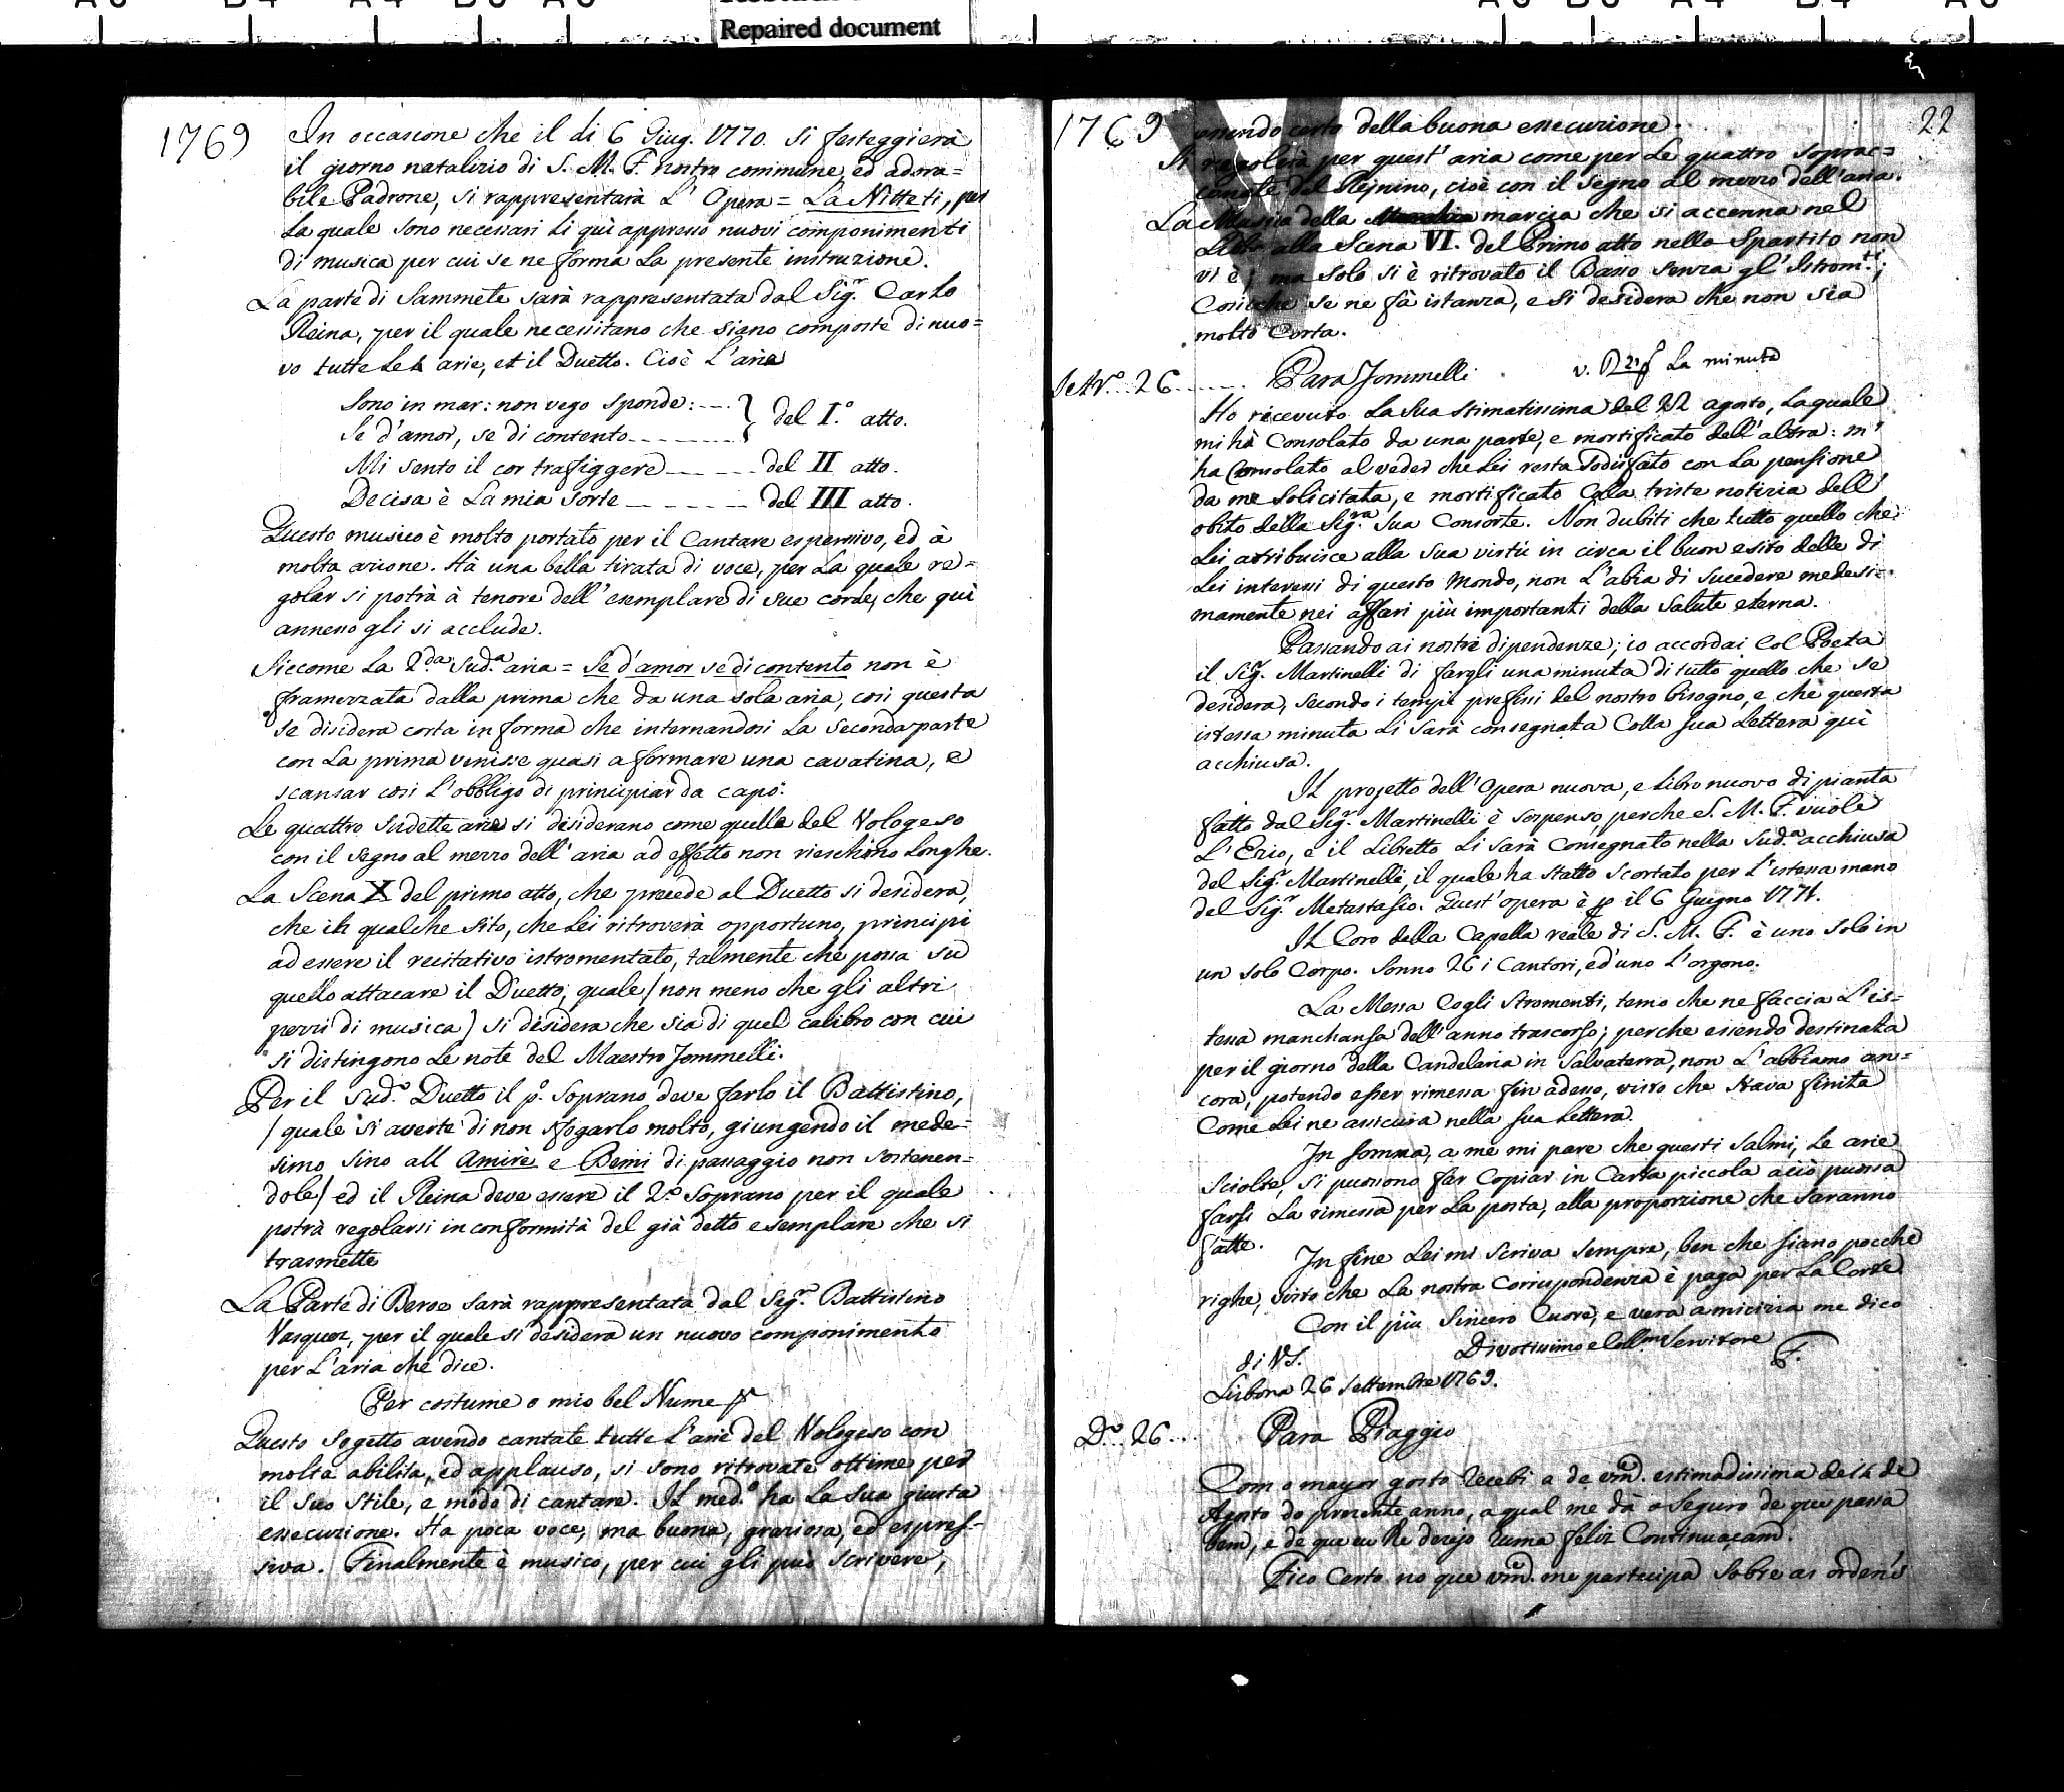 Repaired document
1769
In occasione che il di 6 Giug. 1770. si festeggierà
il giorno natalizio di S. M. F. nostro commune, ed adora=
bile Padrone, si rappresentarà L' Opera = La Nitteti, per
La quale sono necessari li quì appresso nuovi componimenti
di musica per cui se ne forma La presente instruzione.
La parte di Sammete sarà rappresentata dal Sigr. Carlo
Reina, per il quale necessitano che siano composte di nuo=
vo tutte Le 4 arie, et il Duetto. Cioè L'aria
Sono in mar: non vego sponde: ---
Se d'amor, se di contento -------- } del I.° atto.
Mi sento il cor trafiggere ---- del II atto.
Decisa è La mia sorte ------ del III atto.
Questo musico è molto portato per il Cantare espressivo, ed à
molta azione. Hà una bella tirata di voce, per La quale re=
golar si potrà à tenore dell' esemplare di sue corde, che quì
annesso gli si acclude.
Siccome La 2da. Sud.a aria = Se d'amor se di contento non è
framezzata dalla prima che da una sola aria, così questa
se disidera corta in forma che internandosi La Seconda parte
con La prima venisse quasi a formare una cavatina, e
scansar così L'obbligo di principiar da capo.
Le quattro Sudette arie si disiderano come quelle del Vologeso
con il Segno al mezzo dell' aria ad effetto non rieschino Longhe.
La Scena X del primo atto, che precede al Duetto si desidera,
che in qualche sito, che Lei ritroverà opportuno, principi
ad essere il recitativo istromentato, talmente che possa su
quello attacare il Duetto, quale (non meno che gli altri
pezzi di musica) si desidera che sia di quel calibro con cui
si distingono Le note del Maestro Jommelli.
Per il Sud.° Duetto il p.° Soprano deve farlo il Battistino,
(quale si averte di non sfogarlo molto, giungendo il mede=
simo sino all Amirè e Bemi di passaggio non sostenen=
dole) ed il Reina deve essere il 2.° Soprano per il quale
potrà regolarsi in conformità del già detto esemplare che si
trasmette
La Parte di Beroe sarà rappresentata dal Sigr. Battistino
Vasquez, per il quale si desidera un nuovo componimento
per L'aria che dice.
Per costume o mio bel Nume
Questo Sogetto avendo cantate tutte L'arie del Vologeso con
molta abilità, ed applauso, si sono ritrovate ottime per
il suo Stile, e modo di cantare. Il med.° ha La sua giusta
essecuzione. Ha poca voce, ma buona, graziosa, ed espres=
siva. Finalmente è musico, per cui gli può scrivere,
1769
22
essendo certo della buona essecuzione.
Si regolerà per quest' aria come per Le quattro soprac=
cennate del Reinino, cioè con il Segno al mezzo dell' aria.
La Musica della marcia che si accenna nel
Libro alla Scena VI. del Primo atto nello Spartito non
vi è; ma solo si è ritrovato il Basso senza gl' Istrom.ti;
Cosicche se ne fà istanza, e si desidera che non sia
molto Corta.
Setr.° 26 ....... Para Jommelli . v. La minuta
Ho ricevuto La Sua Stimatissima del 22 agosto, La quale
mi hà Consolato da una parte, e mortificato dell' altra: m'
ha Consolato al veder che Lei resta Sodisfato con La pensione
da me Solicitata, e mortificato Colla triste notizia dell'
obito della Sig.ra Sua Consorte. Non dubiti che tutto quello che
Lei atribuisce alla Sua virtù in circa il buon esito delle di
Lei interessi di questo Mondo, non L'abia di Sucedere medesi=
mamente nei affari più importanti della Salute eterna.
Passando ai nostre dipendenze; io accordai Col Poeta
il Sigr. Martinelli di fargli una minuta di tutto quello che se
desidera, Secondo i tempi prefissi del nostro bisogno, e, che questa
istessa minuta Li Sarà consegnata Colla Sua Lettera quì
acchiusa.
Il projetto dell' Opera nuova, e Libro nuovo di pianta
fatto dal Sigr. Martinelli è Sospenso, perche S. M. F. vuole
L'Ezio, e il Libretto Li Sarà Consegnato nella Sud.a acchiusa
del Sigr. Martinelli, il quale ha Stato Scortato per L'istessa mano
del Sigr. Metastasio. Quest' opera è p il 6 Guigno 1771.
Il Coro della Capella reale di S. M. F. è uno Solo in
un solo Corpo. Sonno 26 i Cantori, ed' uno L'orgono.
La Messa Cogli Stromenti, temo che ne faccia L'is=
tessa manchansa dell' anno trascorso; perche essendo destinata
per il giorno della Candelaria in Salvaterra, non L'abbiamo an=
cora, potendo esser rimessa fin adesso, visto che Stava finita
Come Lei ne assicura nella Sua Lettera.
In Somma, a me mi pare che questi Salmi, Le arie
Sciolte, Si puossono far Copiar in Carta piccola acciò puossa
farsi La rimessa per La posta, alla proporzione che Saranno
fatte.
In fine Lei mi Scriva Sempre, ben che Siano pocche
righe, visto che La nostra Corrispondenza è paga per La Corte
Con il più Sincero Cuore, e vera amicizia me dico
di VS. Divotissimo e Servitore
Lisbona 26 Settembre 1769.
D.° 26 ... Para Piaggio
Com o mayor gosto recebi a de vmd. estimadissima de 14 de
Agosto do prezente anno, a qual me dà o Seguro de que passa
bem, e de que eu lhe dezejo huma feliz Continuaçam.
Fico Certo no que vmd. me partecipa Sobre as ordens